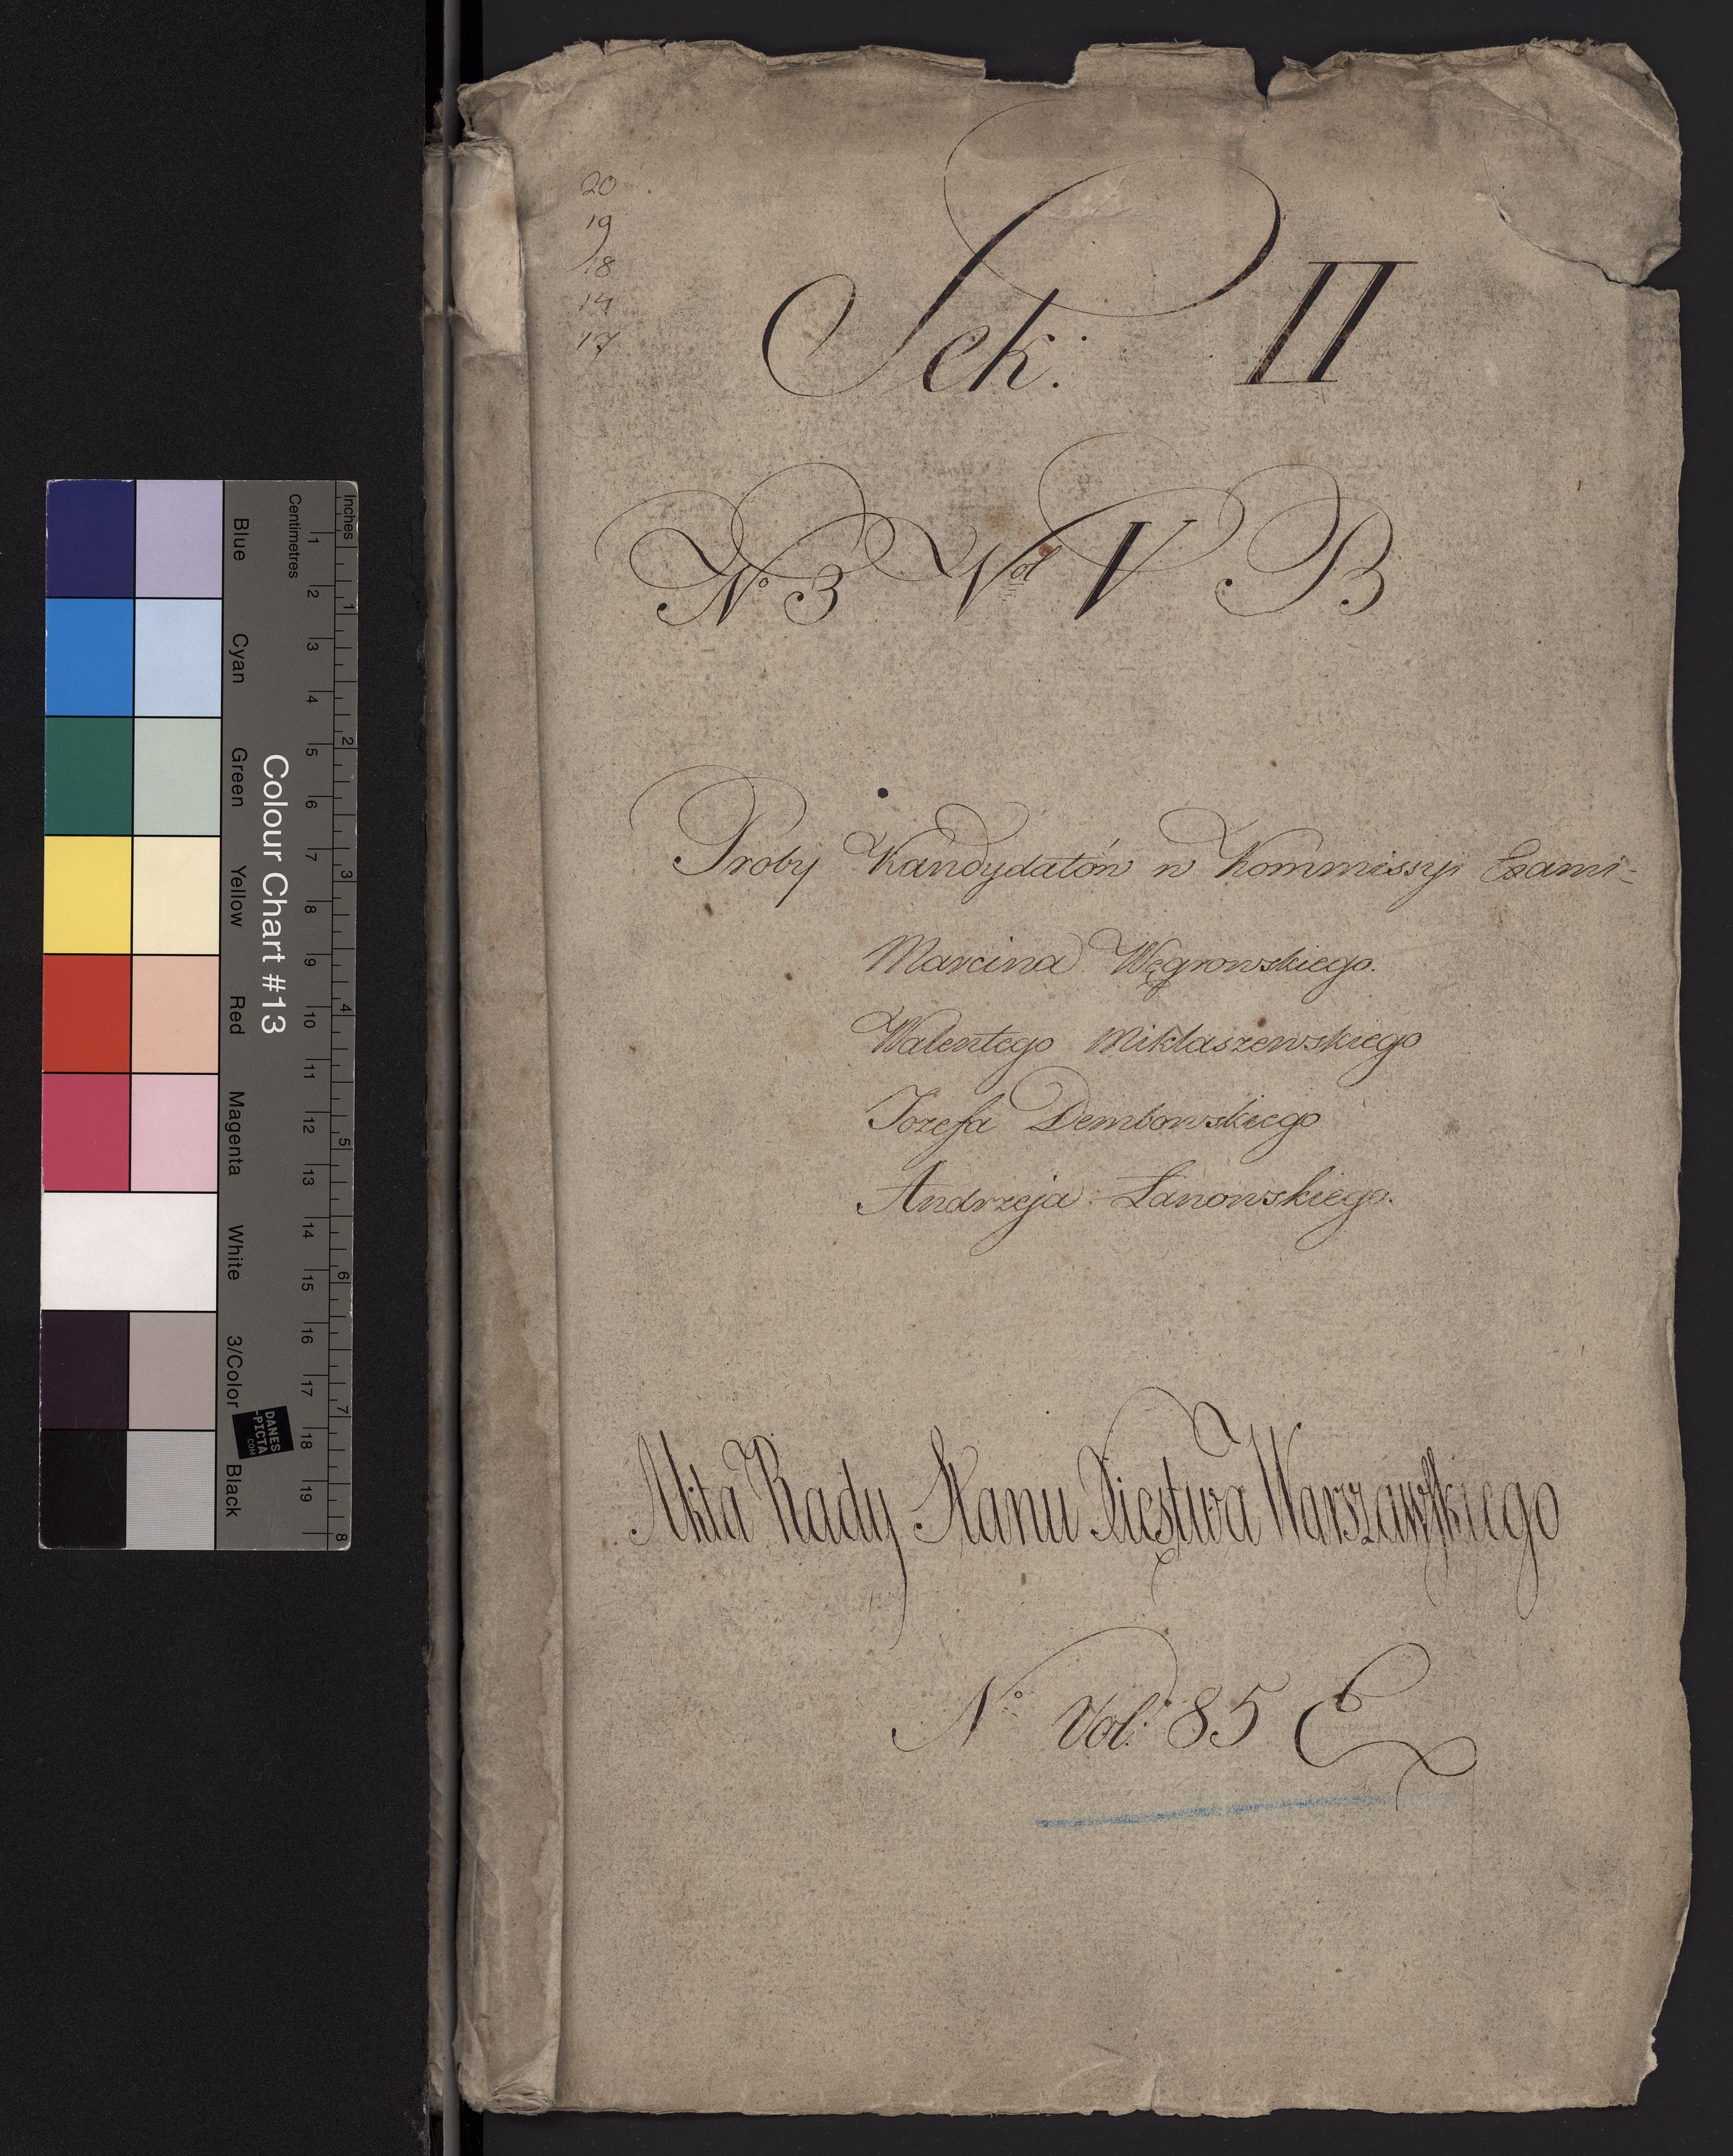 20
19
18
14
17
Sek: II
No 3 Vol V B
Proby Kandydatów w Kommissyi Exami-
Marcina Węgrowskiego.
Walentego Miklaszewskiego
Jozefa Dembowskiego
Andrzeja Łanowskiego.
Akta Rady Stanu Xięstwa Warszawskiego
No Vol: 85 E
Inches
Centimetres
1 2 3 4 5 6 7 8 9 10 11 12 13 14 15 16 17 18 19
1 2 3 4 5 6 7 8
Colour Chart #13
Blue Cyan Green Yellow Red Magenta White 3/Color Black
DANES
-PICTA
.COM